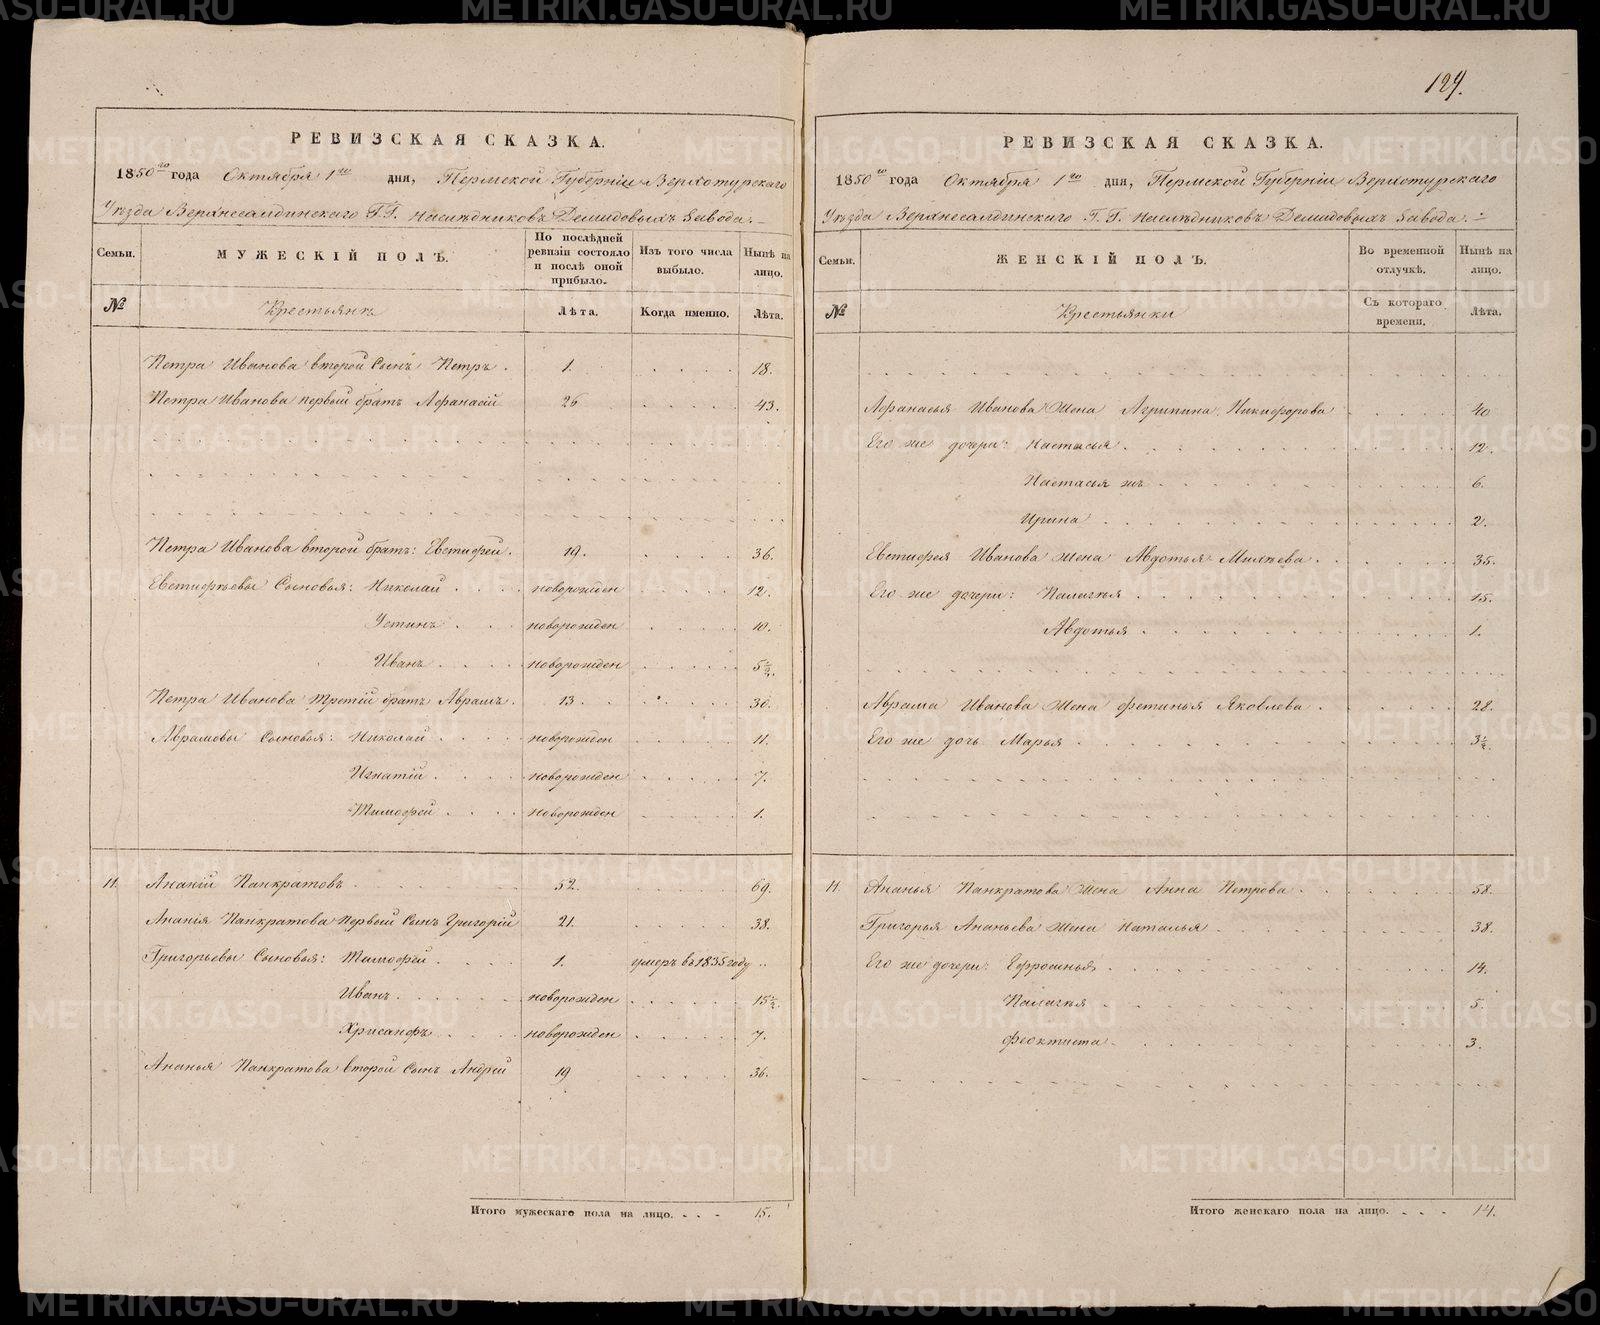 124.
РЕВИЗСКАЯ СКАЗКА.
1850го года Октября 1го дня, Пермской Губерніи Верхотурскаго
Уѣзда Верхнесалдинскаго Г.Г. Наслѣдниковъ Демидовыхъ Завода.
Семьи.
МУЖЕСКІЙ ПОЛЪ.
По послѣдней ревизіи состояло и послѣ оной прибыло.
Изъ того числа выбыло.
Нынѣ на лицо.
№
Крестьянъ
Лѣта.
Когда именно.
Лѣта.
Петра Иванова второй сынъ Петръ. 1. 18.
Петра Иванова первый братъ Афанасій 26 43.
Петра Иванова второй братъ: Евстифей. 19. 36.
Евстифѣевы Сыновья: Николай новорожден 12.
Устинъ новорожден 10.
Иванъ новорожден 5½.
Петра Иванова третій братъ Аврамъ. 13. 30.
Аврамовы Сыновья: Николай новорожден 11.
Игнатій новорожден 7.
Тимофей новорожден 1.
11. Ананій Панкратовъ 52. 69.
Ананія Панкратова первый Сынъ Григорій 21. 38.
Григорьевы Сыновья: Тимофей 1. умеръ въ 1835 году
Иванъ новорожден 15½.
Хрисанфъ новорожден 7.
Ананья Панкратова второй Сынъ Андрей 19 36.
Итого мужескаго пола на лицо. 15.
РЕВИЗСКАЯ СКАЗКА.
1850го года Октября 1го дня, Пермской Губерніи Верхотурскаго
Уѣзда Верхнесалдинскаго Г.Г. Наслѣдниковъ Демидовыхъ Завода.
Семьи.
ЖЕНСКІЙ ПОЛЪ.
Во временной отлучкѣ.
Нынѣ на лицо.
№
Крестьянки
Съ котораго времени.
Лѣта.
Афанасья Иванова Жена Агрипина Никифорова 40
Его же дочери: Настасья 12.
Настасья жъ 6.
Ирина 2.
Евстифея Иванова Жена Авдотья Михѣева 35.
Его же дочери: Палагѣя 15.
Авдотья 1.
Аврама Иванова Жена Фетинья Яковлева 28.
Его же дочь Марья 3½.
11. Ананья Панкратова Жена Анна Петрова 58.
Григорья Ананьева Жена Наталья 38.
Его же дочери: Ефросинья 14.
Палагѣя 5
Феоктиста 3.
Итого женскаго пола на лицо. 14.
METRIKI.GASO-URAL.RU